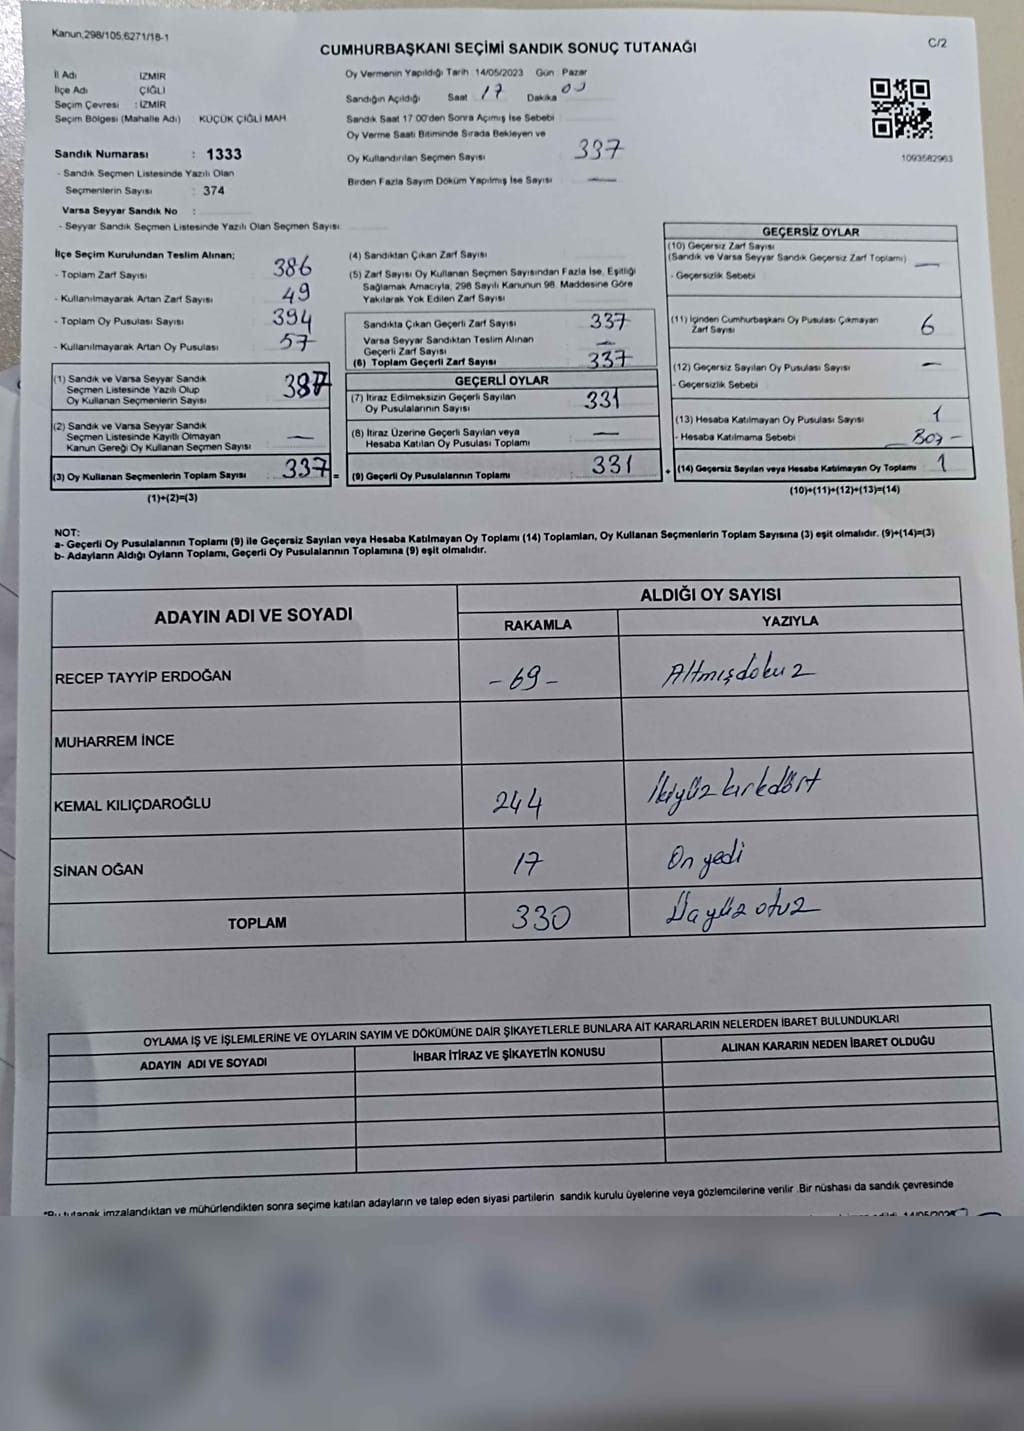 Kanun,298/105,6271/18-1
C/2
CUMHURBAŞKANI SEÇİMİ SANDIK SONUÇ TUTANAĞI
İl Adı İZMİR
İlçe Adı ÇİĞLİ
Seçim Çevresi : İZMİR
Seçim Bölgesi (Mahalle Adı) KÜÇÜK ÇİĞLİ MAH
Sandık Numarası : 1333
- Sandık Seçmen Listesinde Yazılı Olan
Seçmenlerin Sayısı : 374
Varsa Seyyar Sandık No :
- Seyyar Sandık Seçmen Listesinde Yazılı Olan Seçmen Sayısı:
Oy Vermenin Yapıldığı Tarih : 14/05/2023 Gün : Pazar
Sandığın Açıldığı Saat 17 Dakika 00
Sandık Saat 17:00'den Sonra Açımış İse Sebebi
Oy Verme Saati Bitiminde Sırada Bekleyen ve
Oy Kullandırılan Seçmen Sayısı 337
Birden Fazla Sayım Döküm Yapılmış İse Sayısı —
1093582963
İlçe Seçim Kurulundan Teslim Alınan;
- Toplam Zarf Sayısı 386
- Kullanılmayarak Artan Zarf Sayısı 49
- Toplam Oy Pusulası Sayısı 394
- Kullanılmayarak Artan Oy Pusulası 57
(1) Sandık ve Varsa Seyyar Sandık
Seçmen Listesinde Yazılı Olup
Oy Kullanan Seçmenlerin Sayısı 337
(2) Sandık ve Varsa Seyyar Sandık
Seçmen Listesinde Kayıtlı Olmayan
Kanun Gereği Oy Kullanan Seçmen Sayısı —
(3) Oy Kullanan Seçmenlerin Toplam Sayısı 337 =
(1)+(2)=(3)
(4) Sandıktan Çıkan Zarf Sayısı
(5) Zarf Sayısı Oy Kullanan Seçmen Sayısından Fazla İse, Eşitliği
Sağlamak Amacıyla, 298 Sayılı Kanunun 98. Maddesine Göre
Yakılarak Yok Edilen Zarf Sayısı
Sandıkta Çıkan Geçerli Zarf Sayısı 337
Varsa Seyyar Sandıktan Teslim Alınan
Geçerli Zarf Sayısı —
(6) Toplam Geçerli Zarf Sayısı 337
GEÇERLİ OYLAR
(7) İtiraz Edilmeksizin Geçerli Sayılan
Oy Pusulalarının Sayısı 331
(8) İtiraz Üzerine Geçerli Sayılan veya
Hesaba Katılan Oy Pusulası Toplamı —
(9) Geçerli Oy Pusulalarının Toplamı 331 +
GEÇERSİZ OYLAR
(10) Geçersiz Zarf Sayısı
(Sandık ve Varsa Seyyar Sandık Geçersiz Zarf Toplamı) —
- Geçersizlik Sebebi
(11) İçinden Cumhurbaşkanı Oy Pusulası Çıkmayan
Zarf Sayısı 6
(12) Geçersiz Sayılan Oy Pusulası Sayısı —
- Geçersizlik Sebebi
(13) Hesaba Katılmayan Oy Pusulası Sayısı 1
- Hesaba Katılmama Sebebi :
(14) Geçersiz Sayılan veya Hesaba Katılmayan Oy Toplamı 1
(10)+(11)+(12)+(13)=(14)
NOT:
a- Geçerli Oy Pusulalarının Toplamı (9) ile Geçersiz Sayılan veya Hesaba Katılmayan Oy Toplamı (14) Toplamları, Oy Kullanan Seçmenlerin Toplam Sayısına (3) eşit olmalıdır. (9)+(14)=(3)
b- Adayların Aldığı Oyların Toplamı, Geçerli Oy Pusulalarının Toplamına (9) eşit olmalıdır.
ADAYIN ADI VE SOYADI ALDIĞI OY SAYISI
RAKAMLA YAZIYLA
RECEP TAYYİP ERDOĞAN -69- Altmışdokuz
MUHARREM İNCE
KEMAL KILIÇDAROĞLU 244 İkiyüzkırkdört
SİNAN OĞAN 17 On yedi
TOPLAM 330 Üçyüz otuz
OYLAMA İŞ VE İŞLEMLERİNE VE OYLARIN SAYIM VE DÖKÜMÜNE DAİR ŞİKAYETLERLE BUNLARA AİT KARARLARIN NELERDEN İBARET BULUNDUKLARI
ADAYIN ADI VE SOYADI İHBAR İTİRAZ VE ŞİKAYETİN KONUSU ALINAN KARARIN NEDEN İBARET OLDUĞU
*Bu tutanak imzalandıktan ve mühürlendikten sonra seçime katılan adayların ve talep eden siyasi partilerin sandık kurulu üyelerine veya gözlemcilerine verilir. Bir nüshası da sandık çevresinde